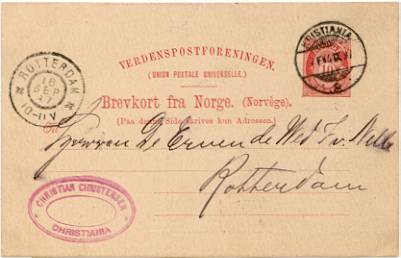 KRISTIANIA
VERDENSPOSTFORENINGEN.
(UNION POSTALE UNIVERSELLE.)
ROTTERDAM
18
SEP
10-11V
Brevkort fra Norge. (Norvège.)
(Paa denne Side skrives kun Adressen.)
Til
De Erven de Wed
Rotterdam
CHRISTIAN CHRISTENSEN
CHRISTIANIA